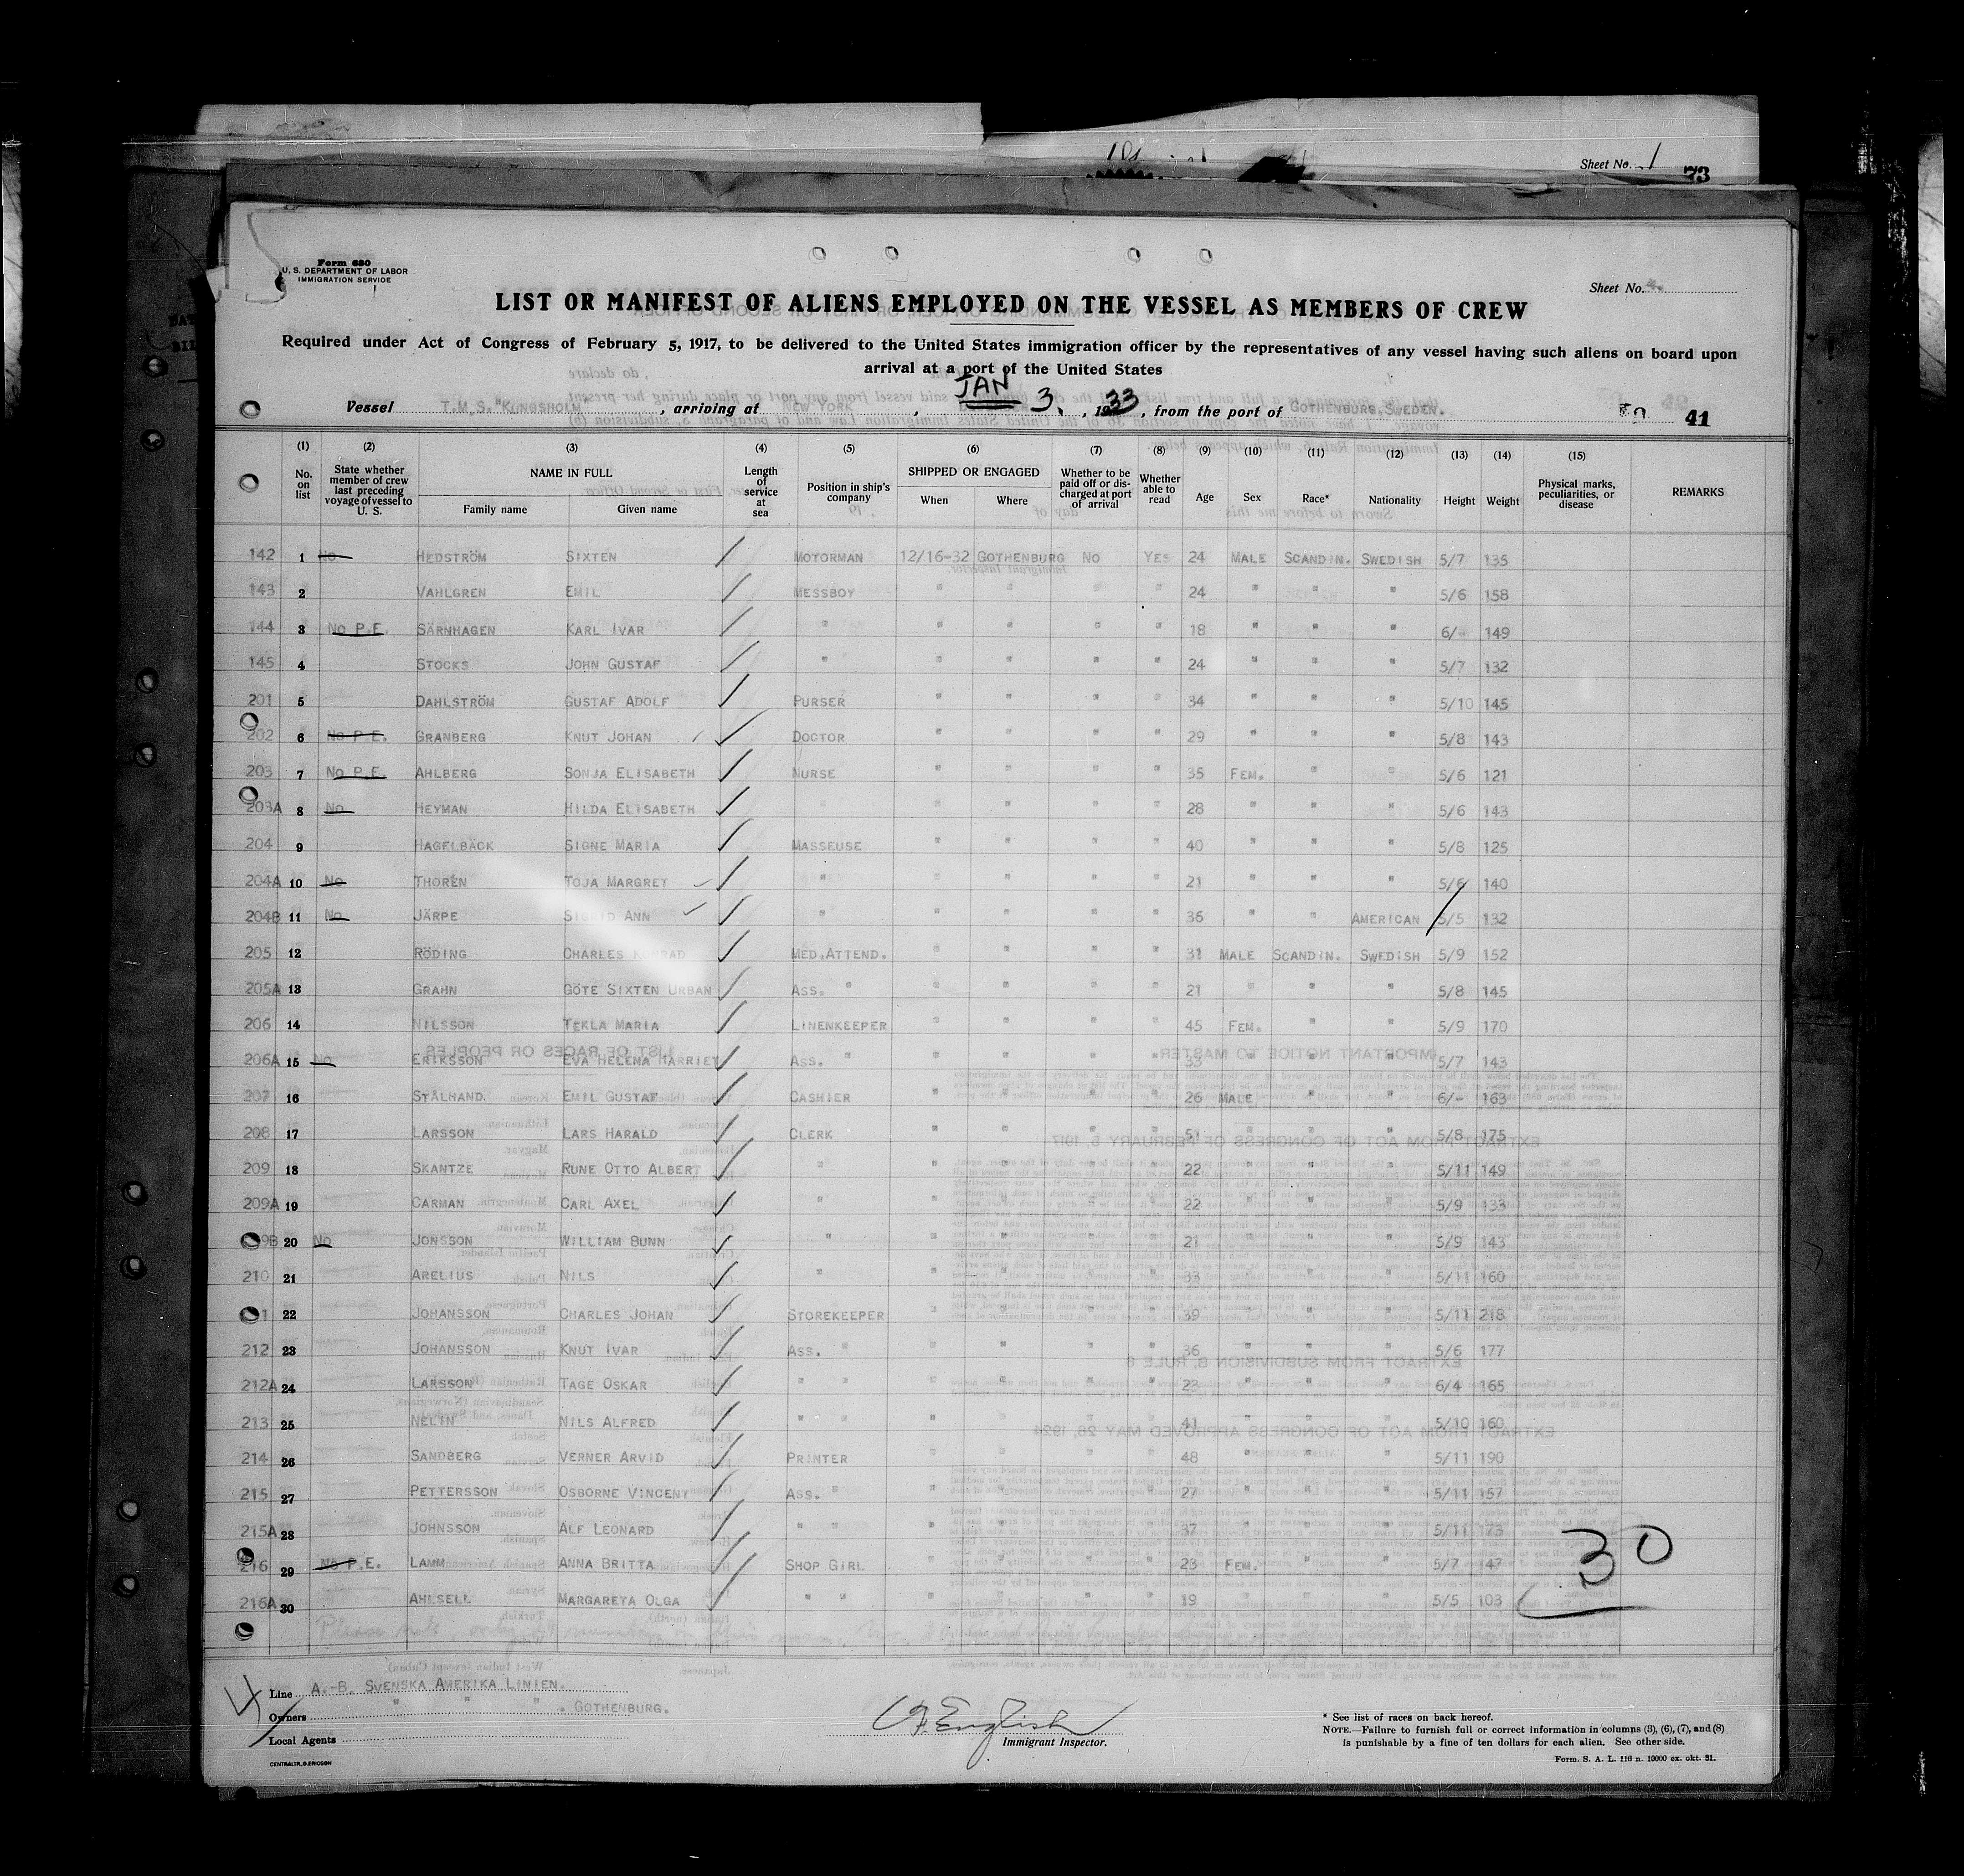 Sheet No. 1
73
Form 680
U. S. DEPARTMENT OF LABOR
IMMIGRATION SERVICE
Sheet No.
LIST OR MANIFEST OF ALIENS EMPLOYED ON THE VESSEL AS MEMBERS OF CREW
Required under Act of Congress of February 5, 1917, to be delivered to the United States immigration officer by the representatives of any vessel having such aliens on board upon
arrival at a port of the United States
Vessel T.M.S. "KUNGSHOLM", arriving at NEW YORK, JAN 3, 1933, from the port of GOTHENBURG, SWEDEN. 41
(1) (2) (3) (4) (5) (6) (7) (8) (9) (10) (11) (12) (13) (14) (15)
No. on list State whether member of crew last preceding voyage of vessel to U. S. NAME IN FULL Family name Given name Length of service at sea Position in ship's company SHIPPED OR ENGAGED When Where Whether to be paid off or discharged at port of arrival Whether able to read Age Sex Race* Nationality Height Weight Physical marks, peculiarities, or disease REMARKS
142 1 No HEDSTRÖM SIXTEN MOTORMAN 12/16-32 GOTHENBURG NO YES 24 MALE SCANDIN. SWEDISH 5/7 135
143 2 VAHLGREN EMIL MESSBOY " " " " 24 " " " 5/6 158
144 3 No P.E. SÄRNHAGEN KARL IVAR " " " " " 18 " " " 6/- 149
145 4 STOCKS JOHN GUSTAF " " " " " 24 " " " 5/7 132
201 5 DAHLSTRÖM GUSTAF ADOLF PURSER " " " " 34 " " " 5/10 145
202 6 No P.E. GRANBERG KNUT JOHAN DOCTOR " " " " 29 " " " 5/8 143
203 7 No P.E. AHLBERG SONJA ELISABETH NURSE " " " " 35 FEM. " " 5/6 121
203A 8 No HEYMAN HILDA ELISABETH " " " " " 28 " " " 5/6 143
204 9 HAGELBÄCK SIGNE MARIA MASSEUSE " " " " 40 " " " 5/8 125
204A 10 No THORÉN TOJA MARGRET " " " " " 21 " " " 5/6 140
204B 11 No JÄRPE SIGRID ANN " " " " " 36 " " AMERICAN 5/5 132
205 12 RÖDING CHARLES KONRAD MED.ATTEND. " " " " 31 MALE SCANDIN. SWEDISH 5/9 152
205A 13 GRAHN GÖTE SIXTEN URBAN ASS. " " " " " 21 " " " 5/8 145
206 14 NILSSON TEKLA MARIA LINENKEEPER " " " " 45 FEM. " " 5/9 170
206A 15 No ERIKSSON EVA HELENA HARRIET ASS. " " " " " 33 " " " 5/7 143
207 16 STÅLHAND. EMIL GUSTAF CASHIER " " " " 26 MALE " " 6/- 163
208 17 LARSSON LARS HARALD CLERK " " " " 51 " " " 5/8 175
209 18 SKANTZE RUNE OTTO ALBERT " " " " " 22 " " " 5/11 149
209A 19 CARMAN CARL AXEL " " " " " 22 " " " 5/9 133
9B 20 No JONSSON WILLIAM BUNN " " " " " 21 " " " 5/9 143
210 21 ARELIUS NILS " " " " " 33 " " " 5/11 160
1 22 JOHANSSON CHARLES JOHAN STOREKEEPER " " " " 39 " " " 5/11 218
212 23 JOHANSSON KNUT IVAR ASS. " " " " " 36 " " " 5/6 177
212A 24 LARSSON TAGE OSKAR " " " " " " 23 " " " 6/4 165
213 25 NELIN NILS ALFRED " " " " " " 41 " " " 5/10 160
214 26 SANDBERG VERNER ARVID PRINTER " " " " 48 " " " 5/11 190
215 27 PETTERSSON OSBORNE VINCENT ASS. " " " " " 27 " " " 5/11 157
215A 28 JOHNSSON ALF LEONARD " " " " " " 37 " " " 5/11 173
216 29 No P.E. LAMM ANNA BRITTA SHOP GIRL " " " " 23 FEM. " " 5/7 147
216A 30 AHLSELL MARGARETA OLGA " " " " " " 19 " " " 5/5 103
30
4
Line A.-B. SVENSKA AMERIKA LINIEN.
Owners " " " . GOTHENBURG.
Local Agents
English
Immigrant Inspector.
* See list of races on back hereof.
NOTE.—Failure to furnish full or correct information in columns (3), (6), (7), and (8)
is punishable by a fine of ten dollars for each alien. See other side.
CENTRALTR., G. ERICSON
Form. S. A. L. 116 n. 10000 ex. okt. 31.